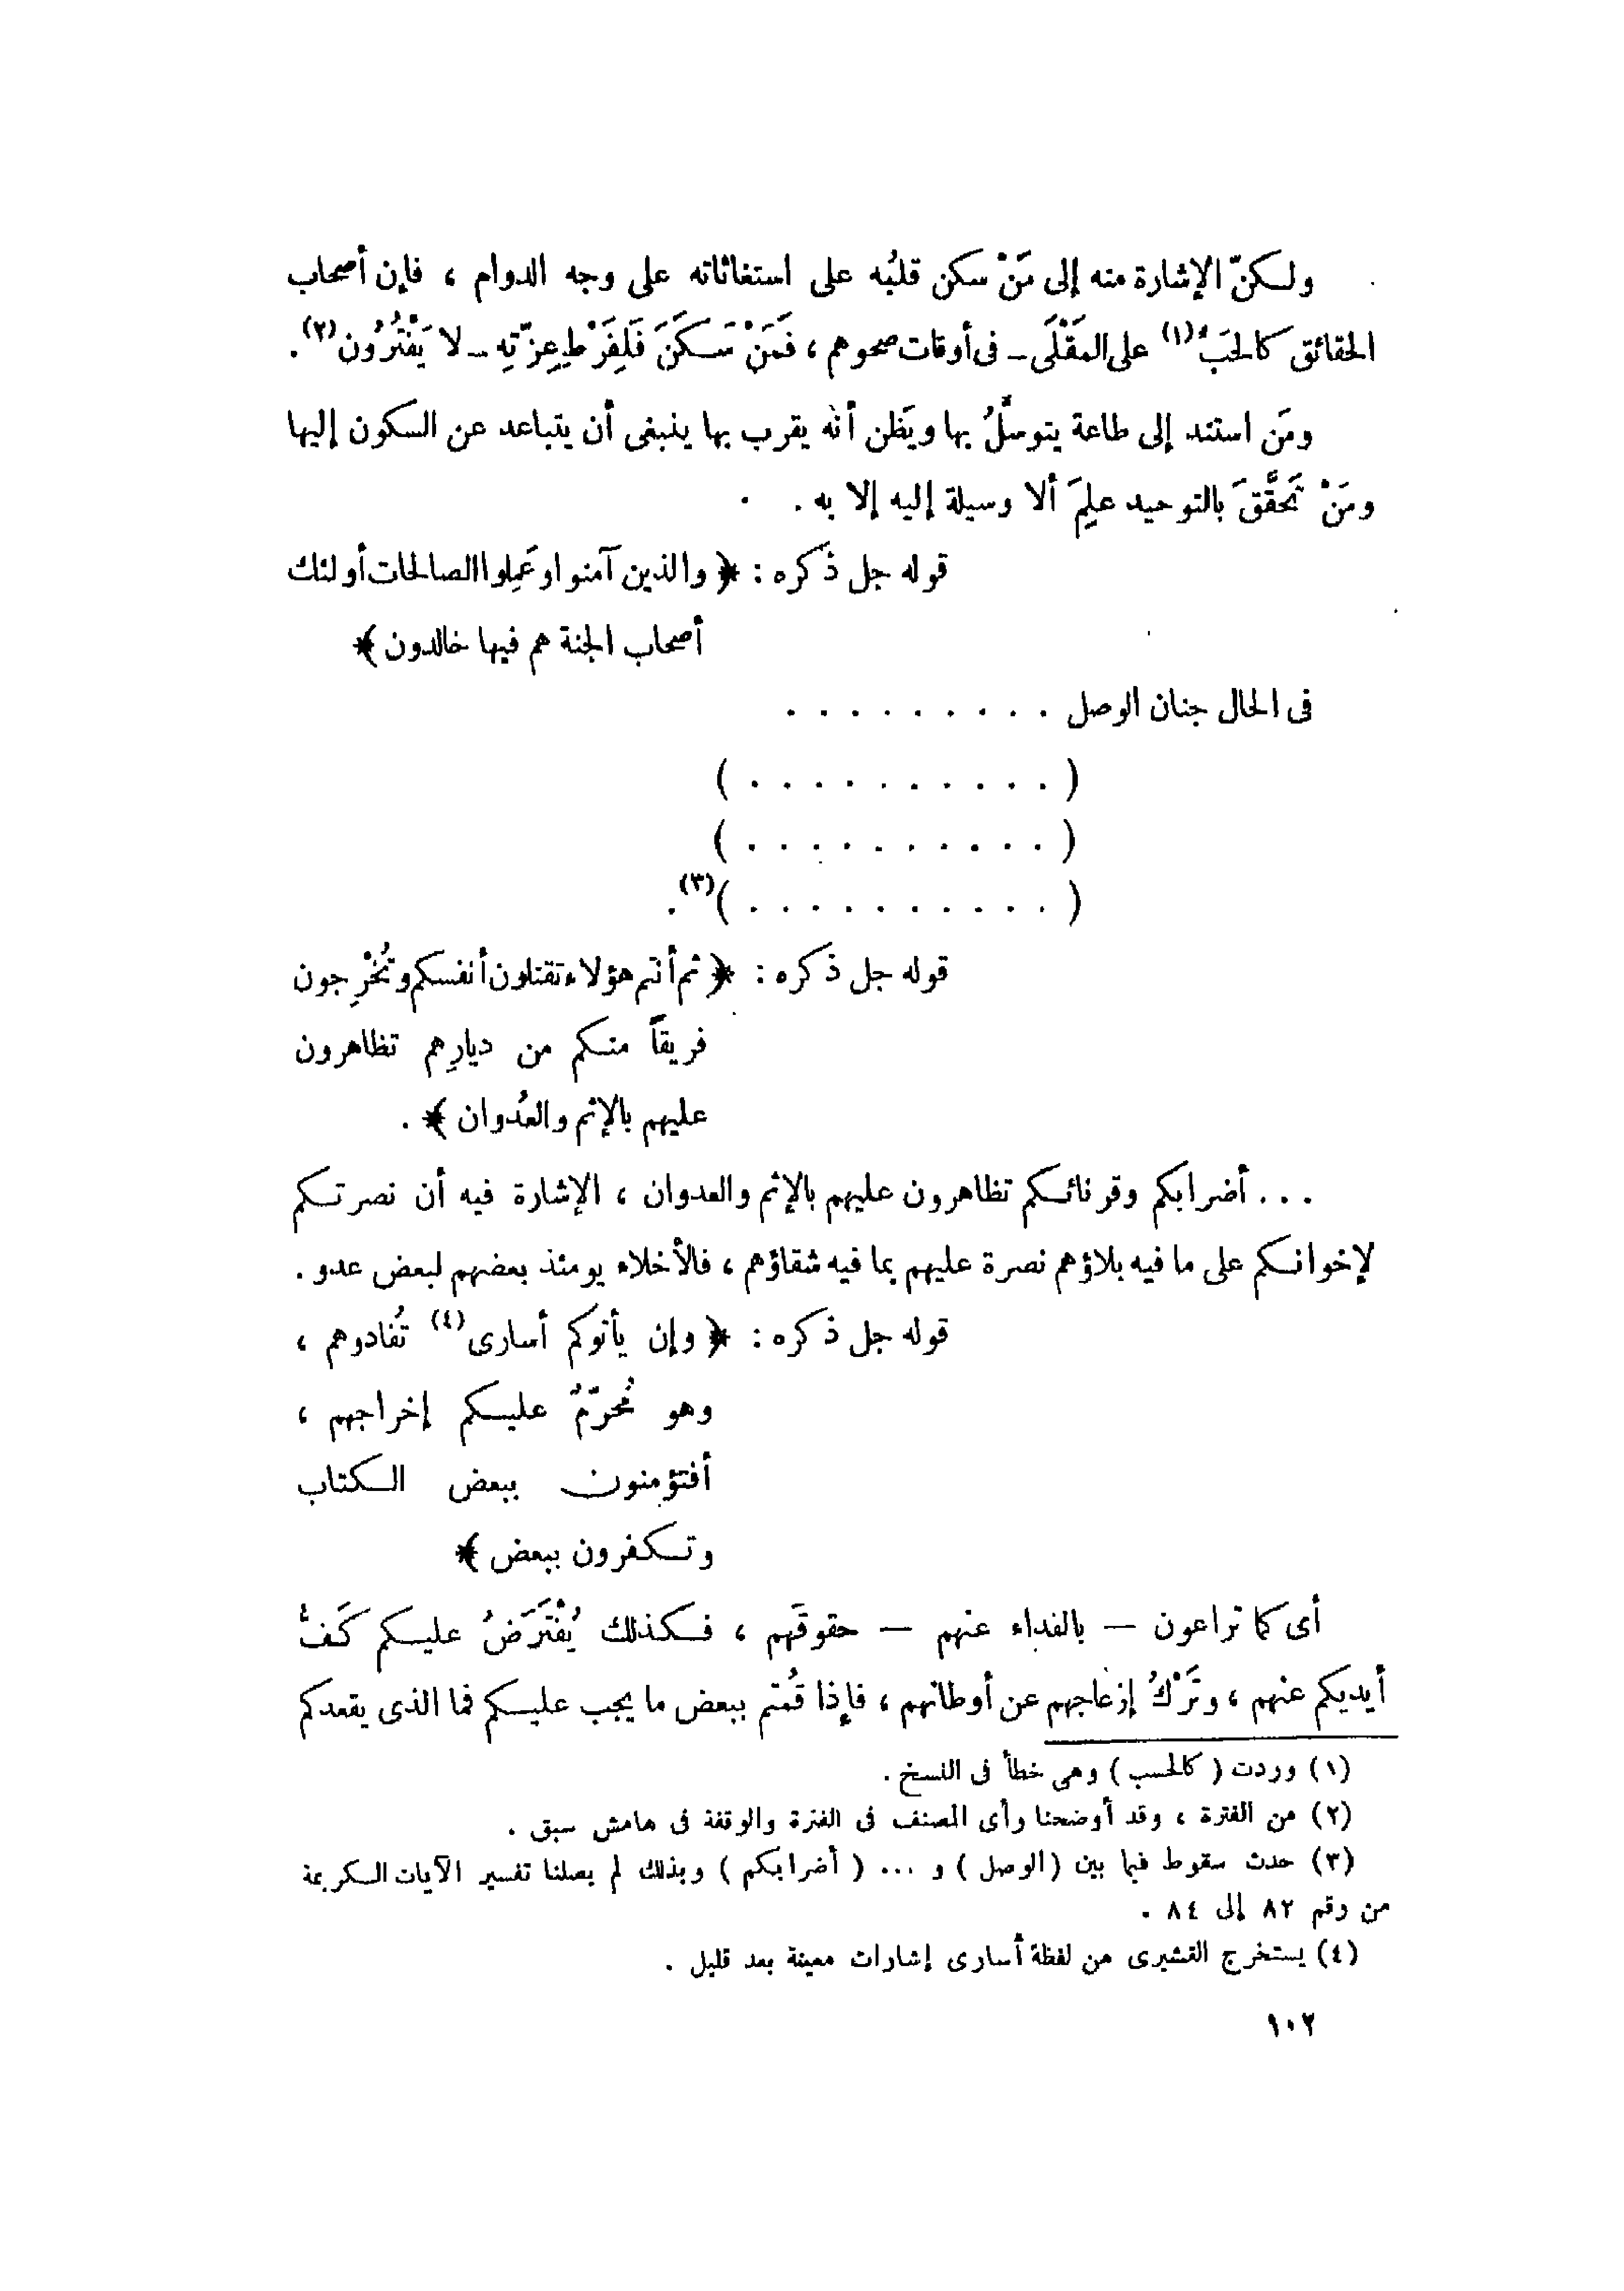 ولكنّ الإشارة منه إلى مَنْ سكن قلبُه على استغاثاته على وجه الدوام ، فإن أصحاب
الحقائق كالحَبِّ(١) على المَقْلَى – فى أوقات صحوهم ، فَمَنْ سَكَنَ فَلِفَرْطِ عِزّتِهِ – لا يَفْتُرُون(٢) .
ومَن استند إلى طاعة يتوسَّلُ بها ويَظن أنه يقرب بها ينبغى أن يتباعد عن السكون إليها
ومَنْ تَحَقَّقَ بالتوحيد علِمَ ألا وسيلة إليه إلا به .
قوله جل ذكره : ﴿ والذين آمنوا وعَمِلوا الصالحات أولئك
أصحاب الجنة هم فيها خالدون ﴾
فى الحال جنان الوصل . . . . . . . . .
( . . . . . . . . . . )
( . . . . . . . . . . )
( . . . . . . . . . . )(٣) .
قوله جل ذكره : ﴿ ثم أنتم هؤلاء تقتلون أنفسكم وتُخْرِجون
فريقاً منكم من ديارِهم تظاهرون
عليهم بالإثم والعُدوان ﴾ .
. . . أضرابكم وقرنائكم تظاهرون عليهم بالإثم والعدوان ، الإشارة فيه أن نصرتكم
لإخوانكم على ما فيه بلاؤهم نصرة عليهم بما فيه شقاؤهم ، فالأخلاء يومئذ بعضهم لبعض عدو .
قوله جل ذكره : ﴿ وإن يأتوكم أسارى(٤) تُفادوهم ،
وهو مُحرّمٌ عليكم إخراجهم ،
أفتؤمنون ببعض الكتاب
وتكفرون ببعض ﴾
أى كما تراعون – بالفداء عنهم – حقوقَهم ، فكذلك يُفْتَرَضُ عليكم كَفُّ
أيديكم عنهم ، وتَرْكُ إزعاجهم عن أوطانهم ، فإذا قُمتم ببعض ما يجب عليكم فما الذى يقعدكم
(١) وردت ( كالحسب ) وهى خطأ فى النسخ .
(٢) من الفترة ، وقد أوضحنا رأى المصنف فى الفترة والوقفة فى هامش سبق .
(٣) حدث سقوط فيما بين (الوصل ) و ... ( أضرابكم ) وبذلك لم يصلنا تفسير الآيات الكريمة
من رقم ٨٢ إلى ٨٤ .
(٤) يستخرج القشيرى من لفظة أسارى إشارات معينة بعد قليل .
١٠٢